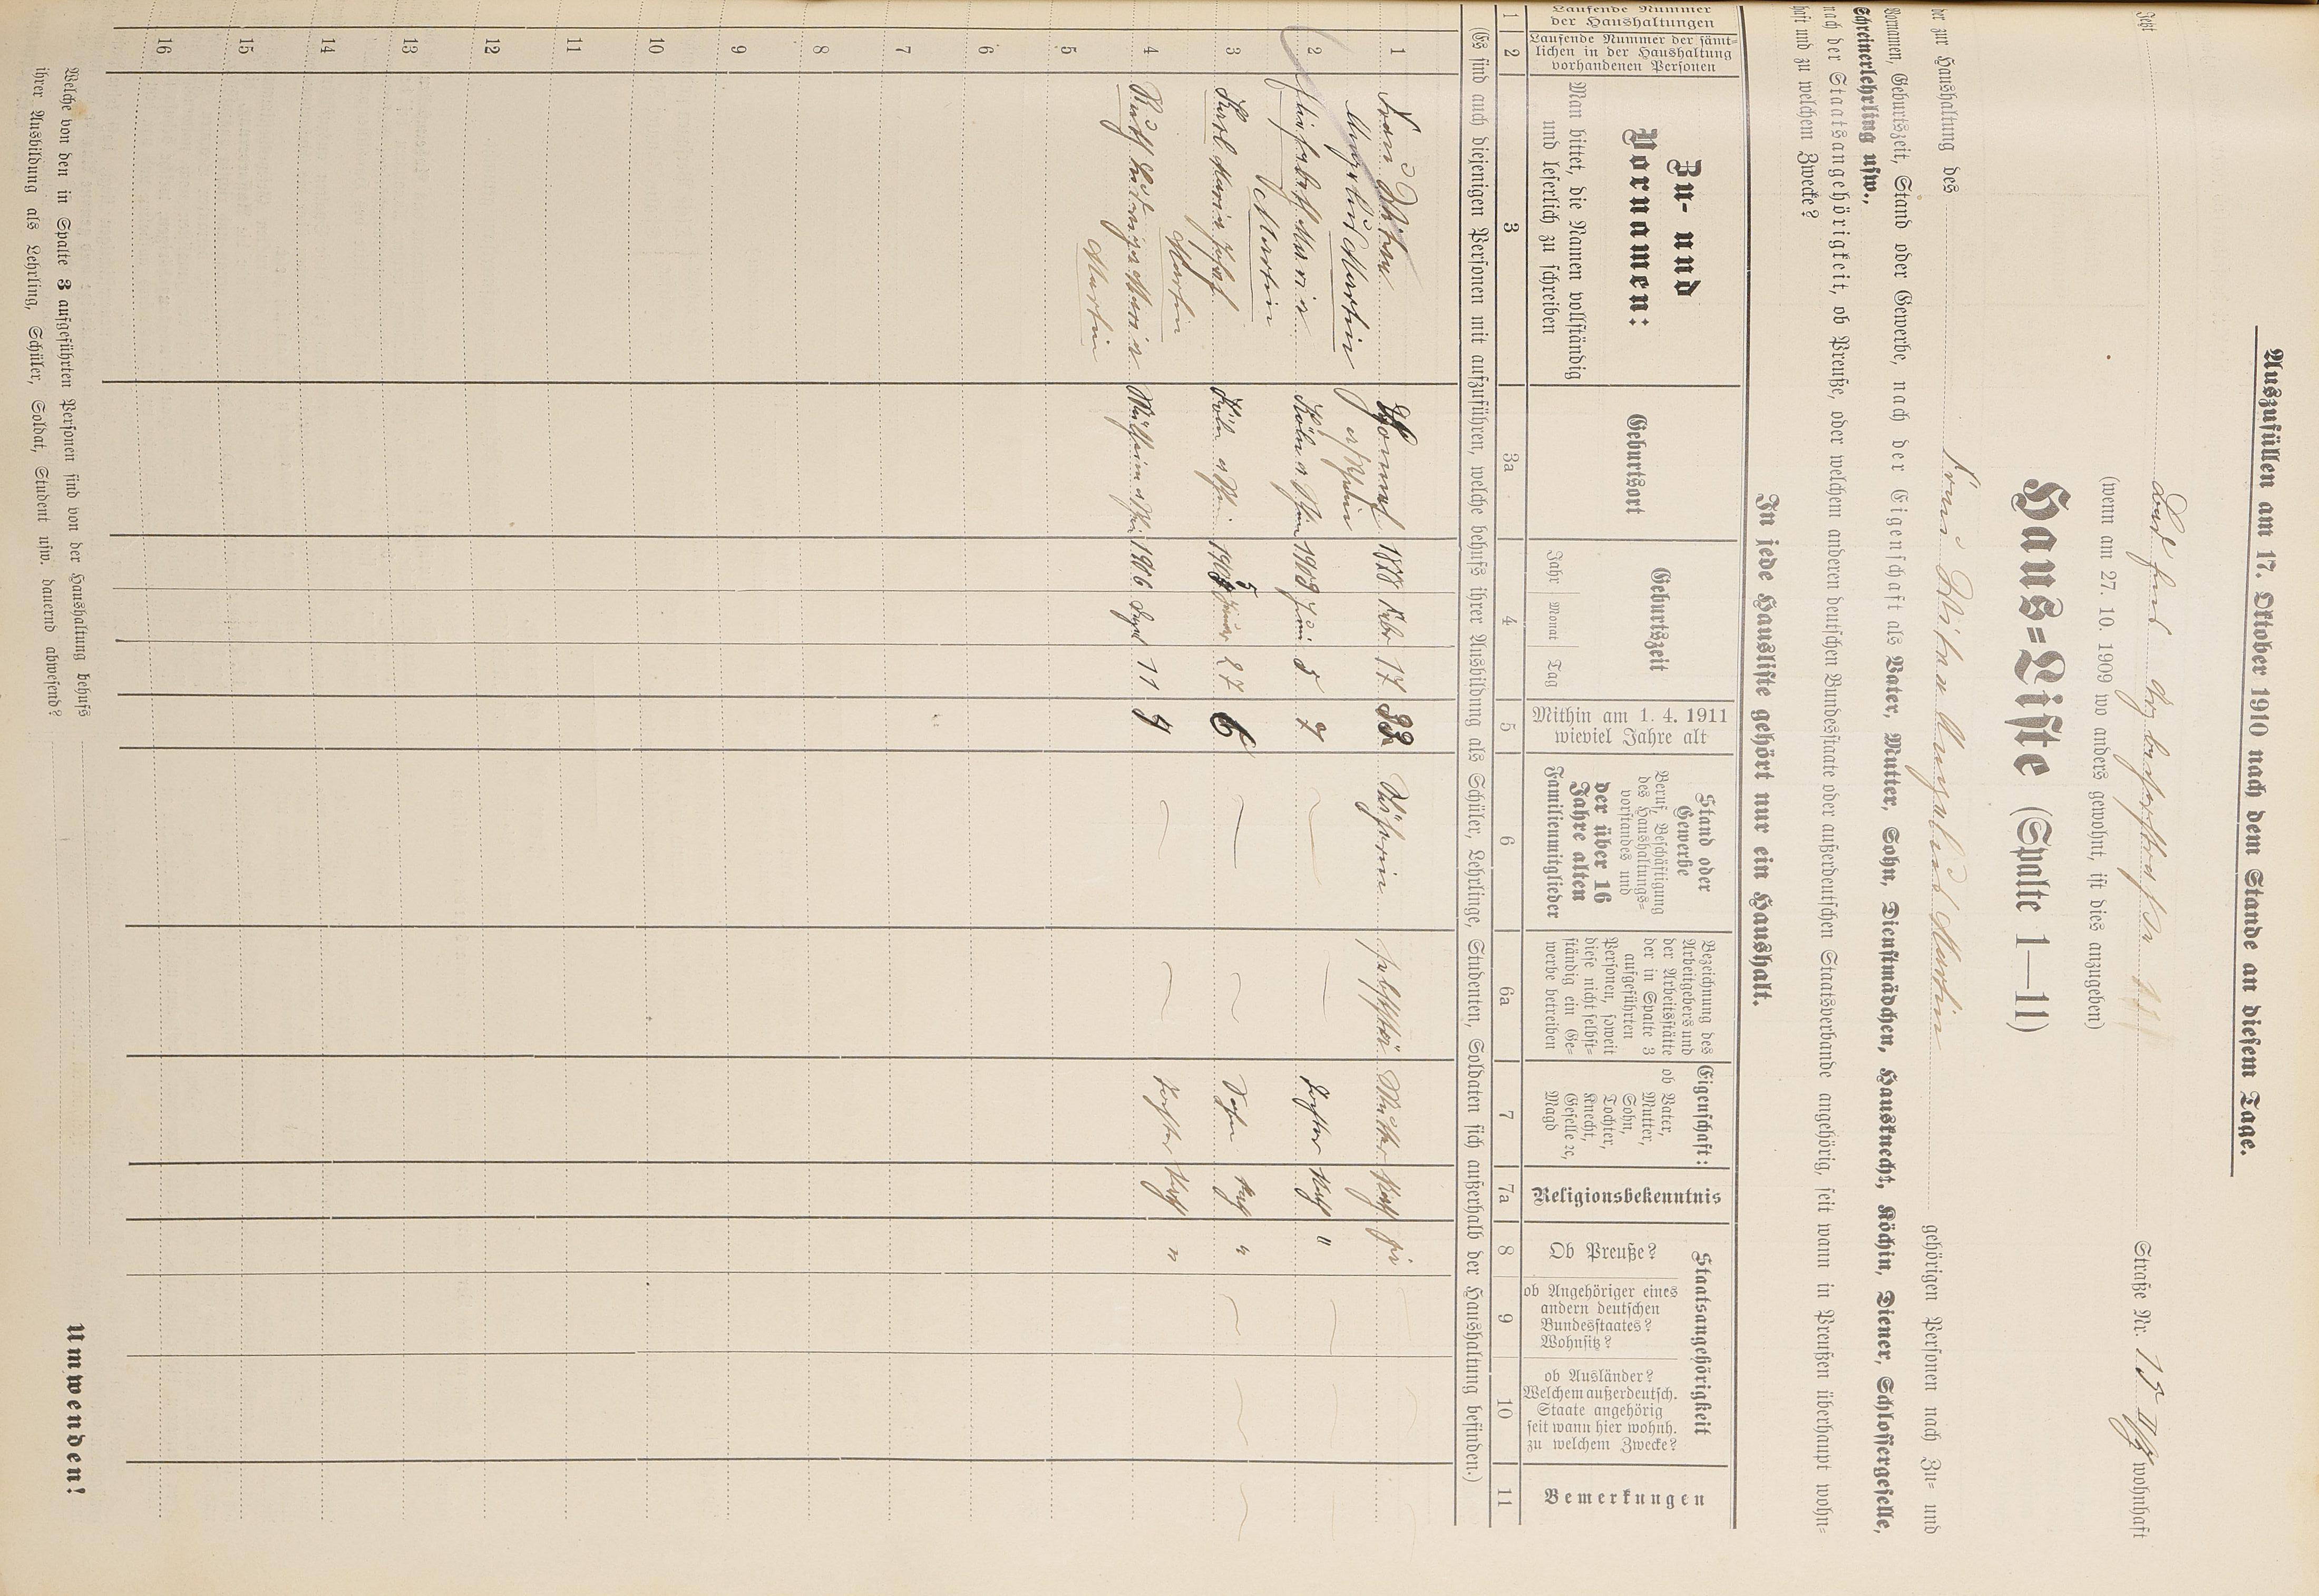 Auszufüllen am 17. Oktober 1910 nach dem Stande an diesem Tage.
Jetzt Straße Nr. 15 wohnhaft
(wenn am 27. 10. 1909 wo anders gewohnt, ist dies anzugeben)
Haus=Liste (Spalte 1—11)
der zur Haushaltung des Frau Witwe Martin gehörigen Personen nach Zu= und
Vornamen, Geburtszeit, Stand oder Gewerbe, nach der Eigenschaft als Vater, Mutter, Sohn, Dienstmädchen, Hausknecht, Köchin, Diener, Schlossergeselle,
Schreinerlehrling usw.,
nach der Staatsangehörigkeit, ob Preuße, oder welchem anderen deutschen Bundesstate oder außerdeutschen Statsverbande angehörig, seit wann in Preußen überhaupt wohn=
haft und zu welchem Zwecke?
In jede Hausliste gehört nur ein Haushalt.
Laufende Nummer der Haushaltungen
Laufende Nummer der sämt=
lichen in der Haushaltung
vorhandenen Personen
Zu- und
Vornamen:
Man bittet, die Namen vollständig
und leserlich zu schreiben
Geburtsort
Geburtszeit
Jahr Monat Tag
Mithin am 1. 4. 1911
wieviel Jahre alt
Stand oder
Gewerbe
Beruf, Beschäftigung
des Haushaltungs=
vorstandes und
der über 16
Jahre alten
Familienmitglieder
Bezeichnung des
Arbeitgebers und
der Arbeitsstätte
der in Spalte 3
aufgeführten
Personen, soweit
diese nicht selbst=
ständig ein Ge=
werbe betreiben
Eigenschaft:
ob Vater,
Mutter,
Sohn,
Tochter,
Knecht,
Geselle ec,
Magd
Religionsbekenntnis
Staatsangehörigkeit
Ob Preuße?
ob Angehöriger eines
andern deutschen
Bundesstaates?
Wohnsitz?
ob Ausländer?
Welchem außerdeutsch.
Staate angehörig
seit wann hier wohnh.
zu welchem Zwecke?
Bemerkungen
1 2 3 3a 4 5 6 6a 7 7a 8 9 10 11
(Es sind auch diejenigen Personen mit aufzuführen, welche behufs ihrer Ausbildung als Schüler, Lehrlinge, Studenten, Soldaten sich außerhalb der Haushaltung befinden.)
1 Frau Witwe 1878 Febr 17 33 Mutter Kath ja
Martin a/Rhein
2 Maria Köln a Rhein 1903 Juni 5 7 Tochter Kath "
Martin
3 Karl Maria Josef Köln a Rhein 1905 27 6 Sohn Kath "
Martin
4 Maria Mülheim a Rhein 1906 Sept 11 4 Tochter Kath "
Martin
5
6
7
8
9
10
11
12
13
14
15
16
Welche von den in Spalte 3 aufgeführten Personen sind von der Haushaltung behufs
ihrer Ausbildung als Lehrling, Schüler, Soldat, Student usw. dauernd abwesend?
Umwenden!